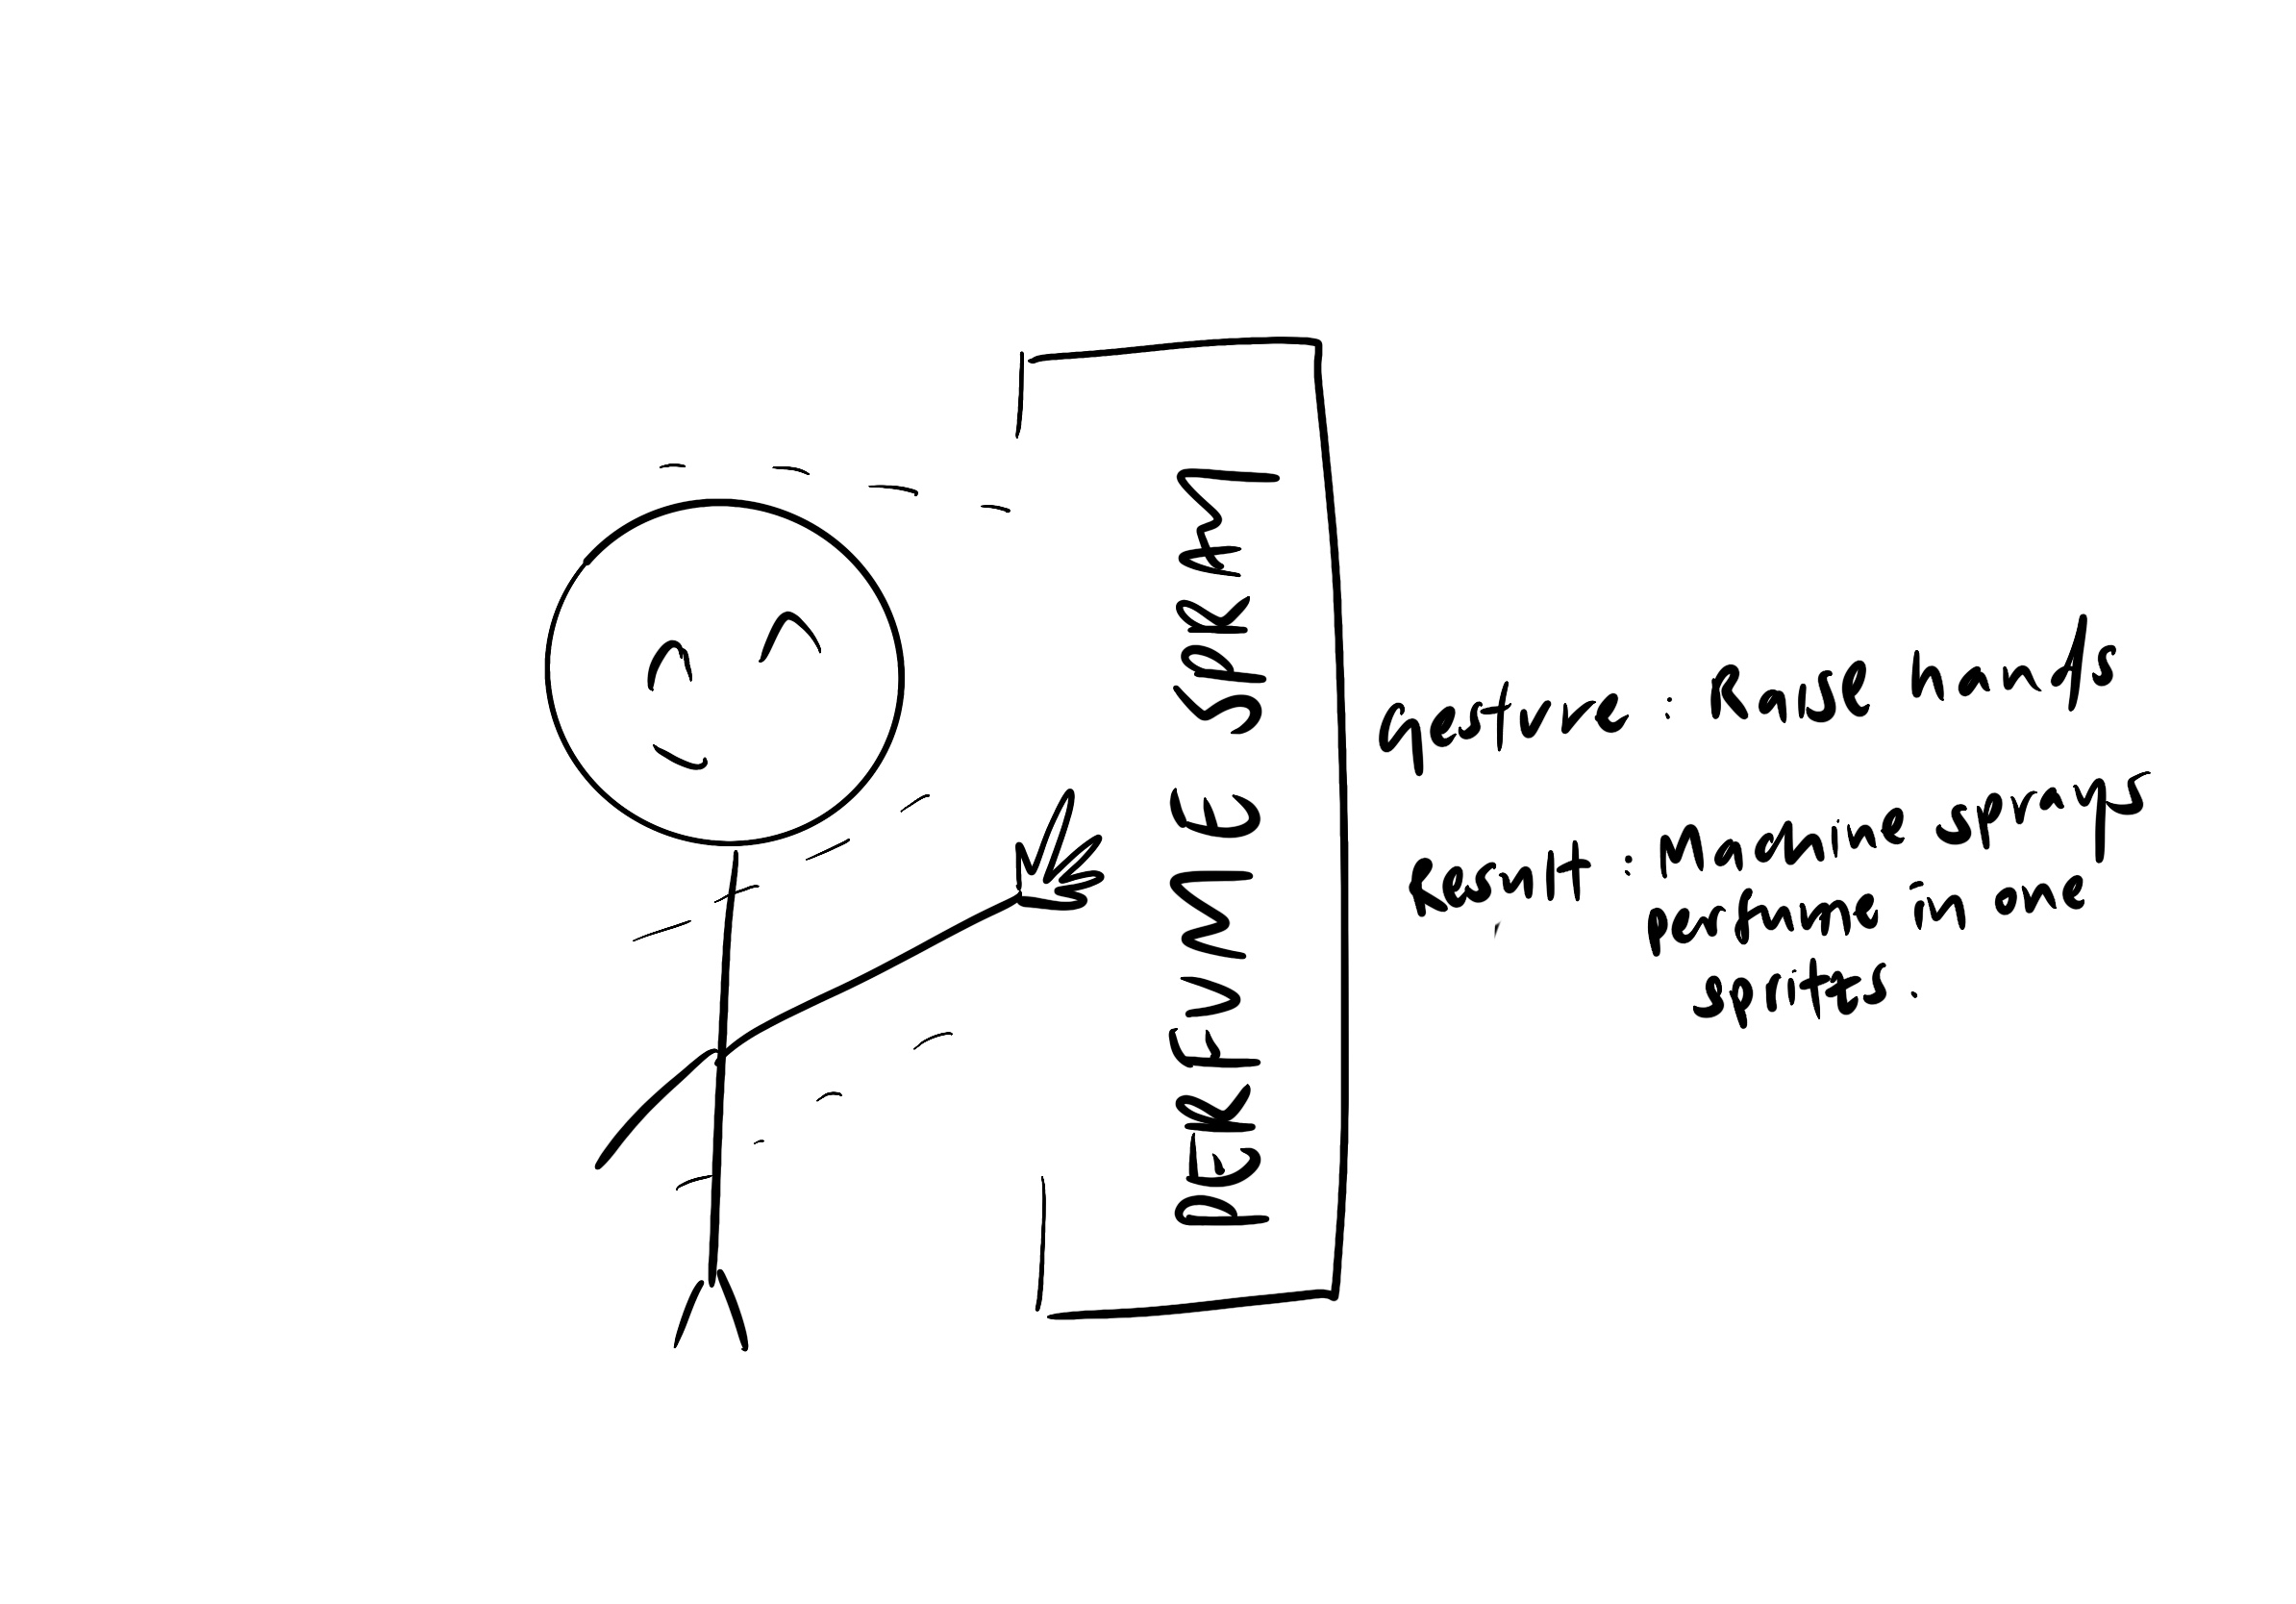 PERFUME SPRAY
Gesture : Raise hands
Result : Machine sprays
perfume in one
spritts.